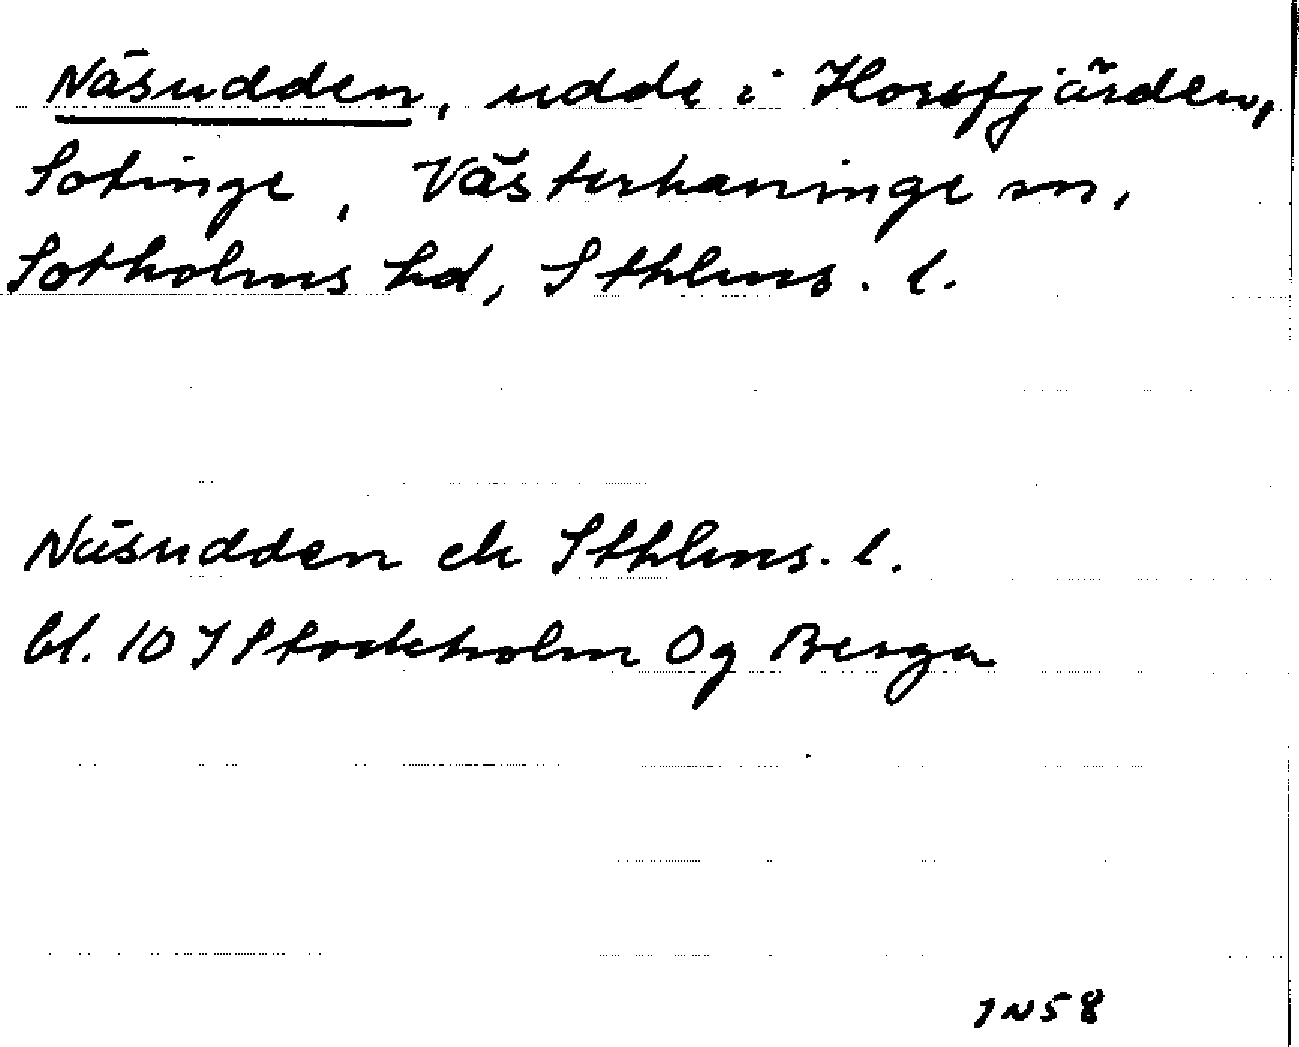 Näsudden, udde i Horsfjärden,
Sotinge, Västerhaninge sn,
Sotholms hd, Sthlms. l.
Näsudden ek Sthlms. l.
bl. 10 I Stockholm Og Berga
IN58